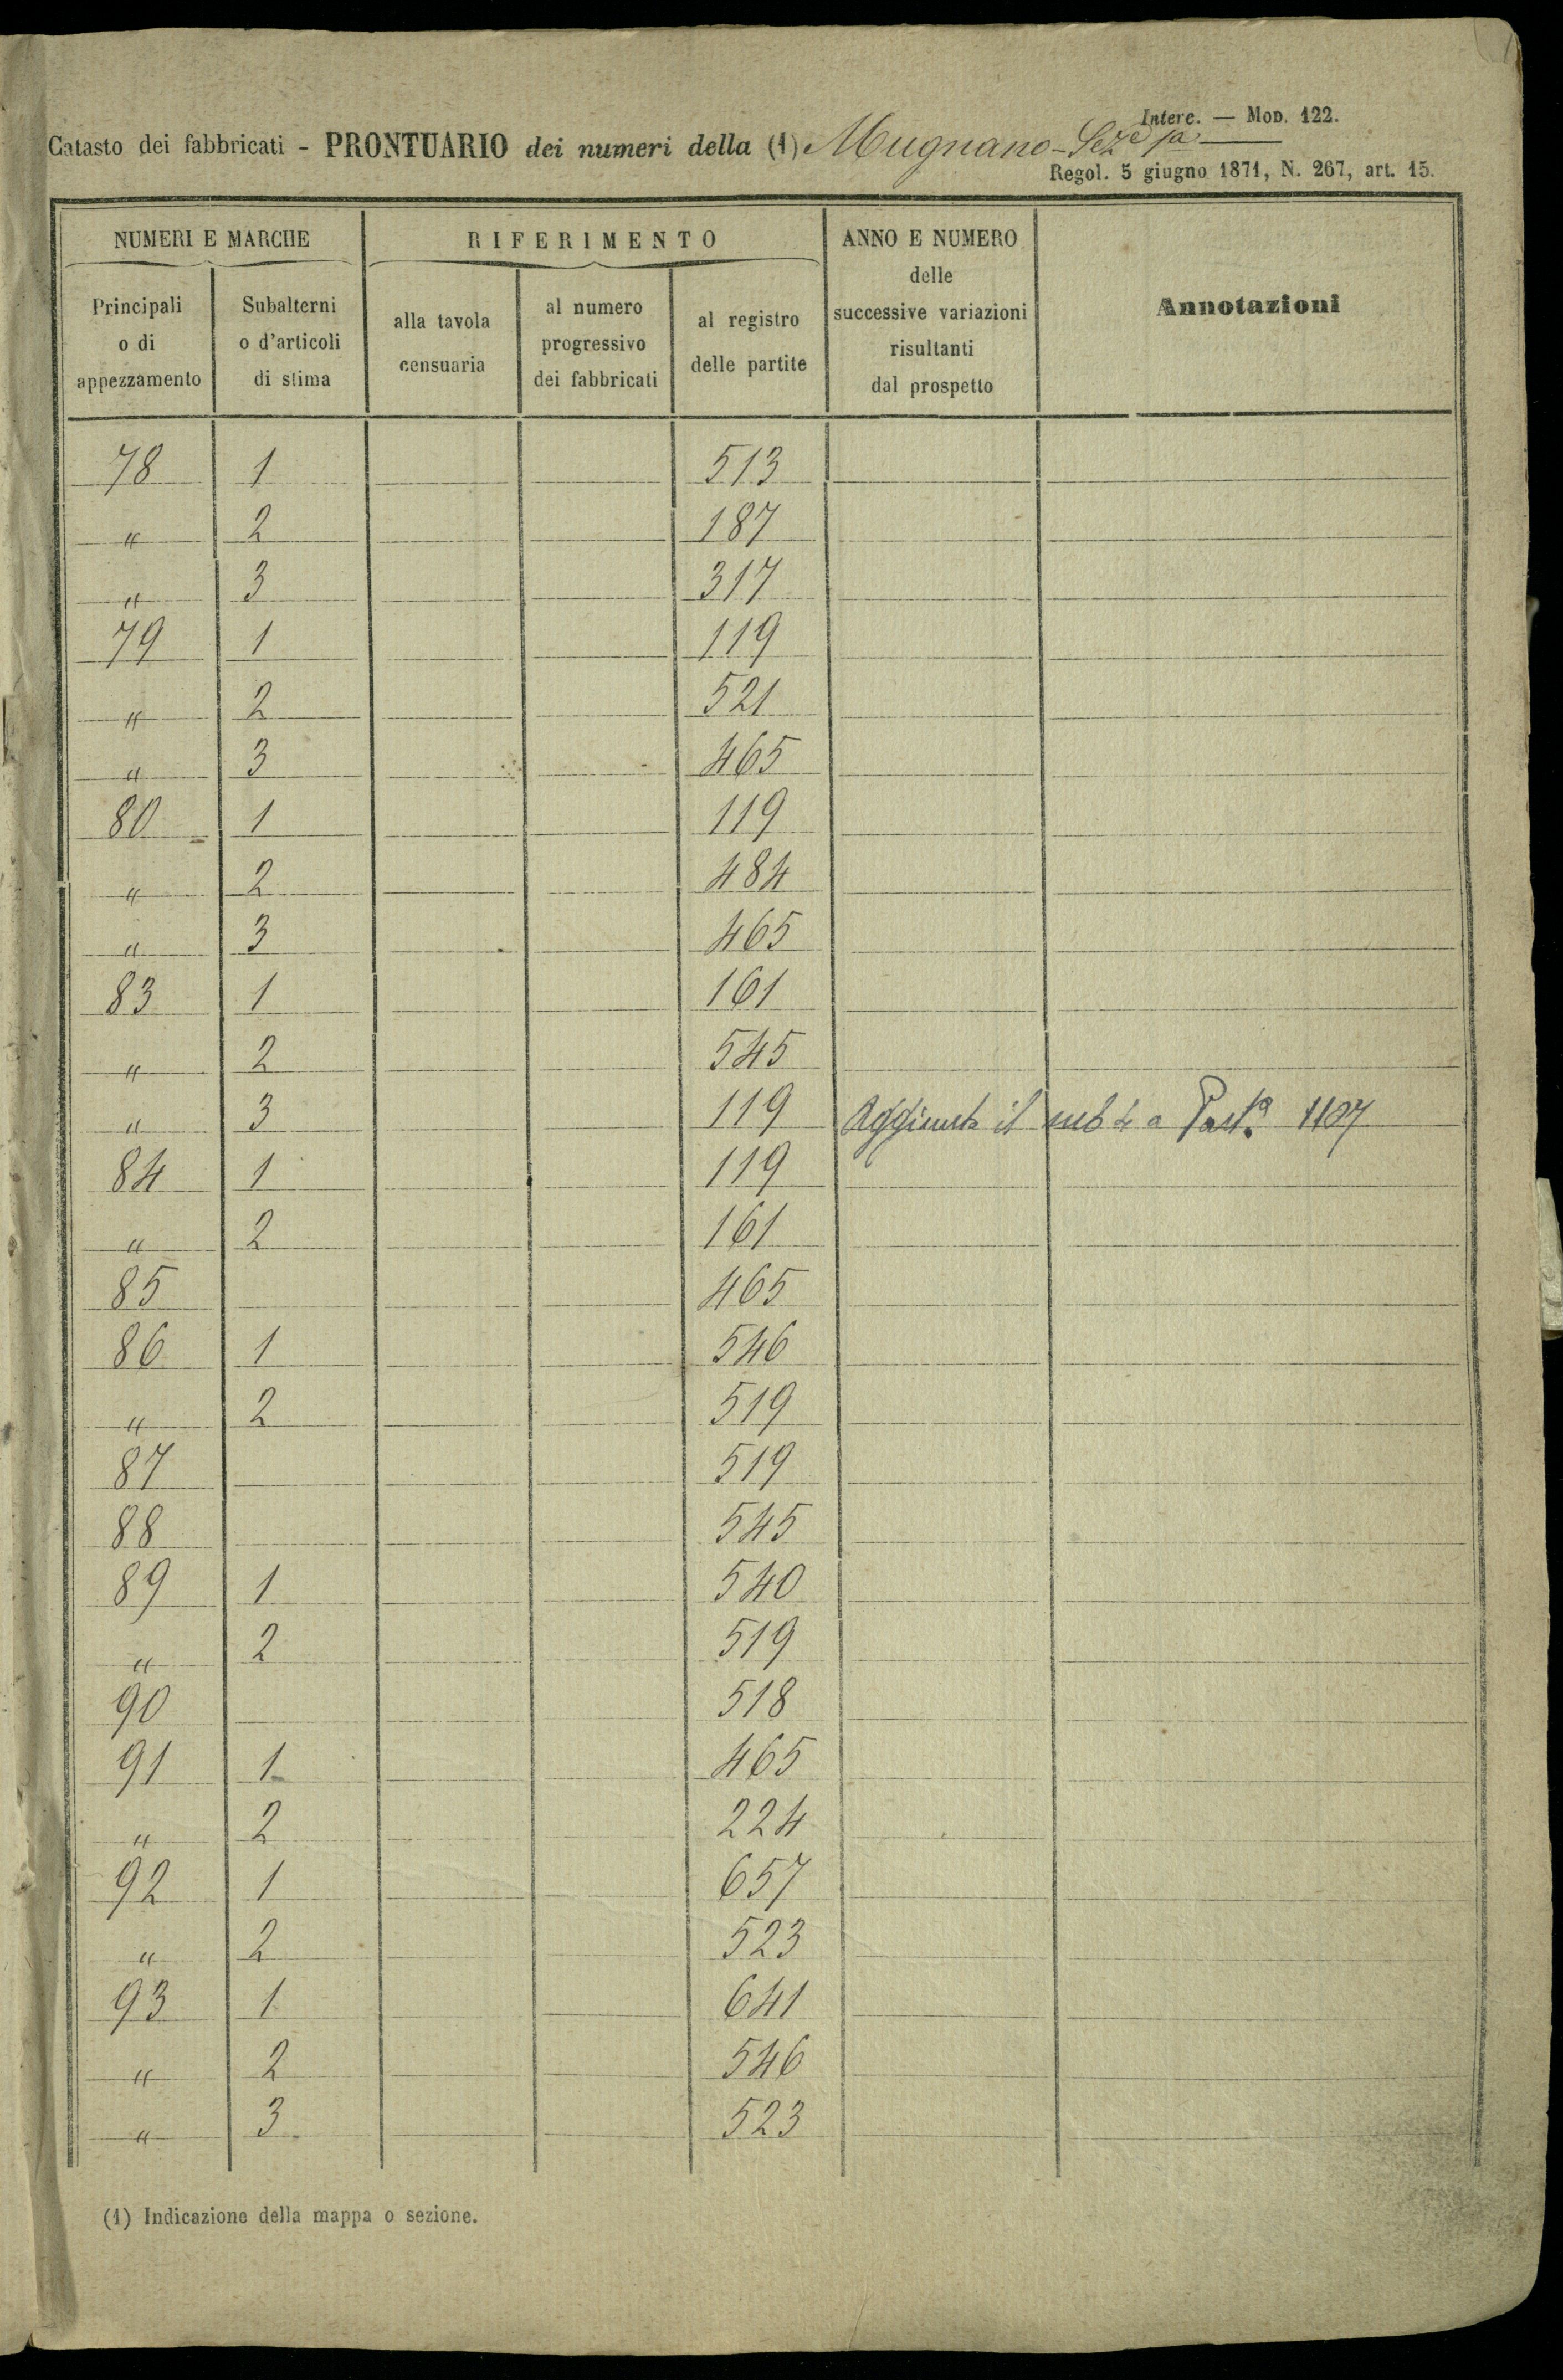 Interc. — MOD. 122.
Catasto dei fabbricati - PRONTUARIO dei numeri della (1) Mugnano - Sezᵉ 1ᵃ
Regol. 5 giugno 1871, N. 267, art. 15.
NUMERI E MARCHE RIFERIMENTO ANNO E NUMERO delle successive variazioni risultanti dal prospetto Annotazioni
Principali o di appezzamento Subalterni o d'articoli di stima alla tavola censuaria al numero progressivo dei fabbricati al registro delle partite
78 1 513
" 2 187
" 3 317
79 1 119
" 2 521
" 3 465
80 1 119
" 2 484
" 3 465
83 1 161
" 2 545
" 3 119 Aggiunto il sub 4 a Partᵃ 1107
84 1 119
" 2 161
85 465
86 1 546
" 2 519
87 519
88 545
89 1 540
" 2 519
90 518
91 1 465
" 2 224
92 1 657
" 2 523
93 1 641
" 2 546
" 3 523
(1) Indicazione della mappa o sezione.